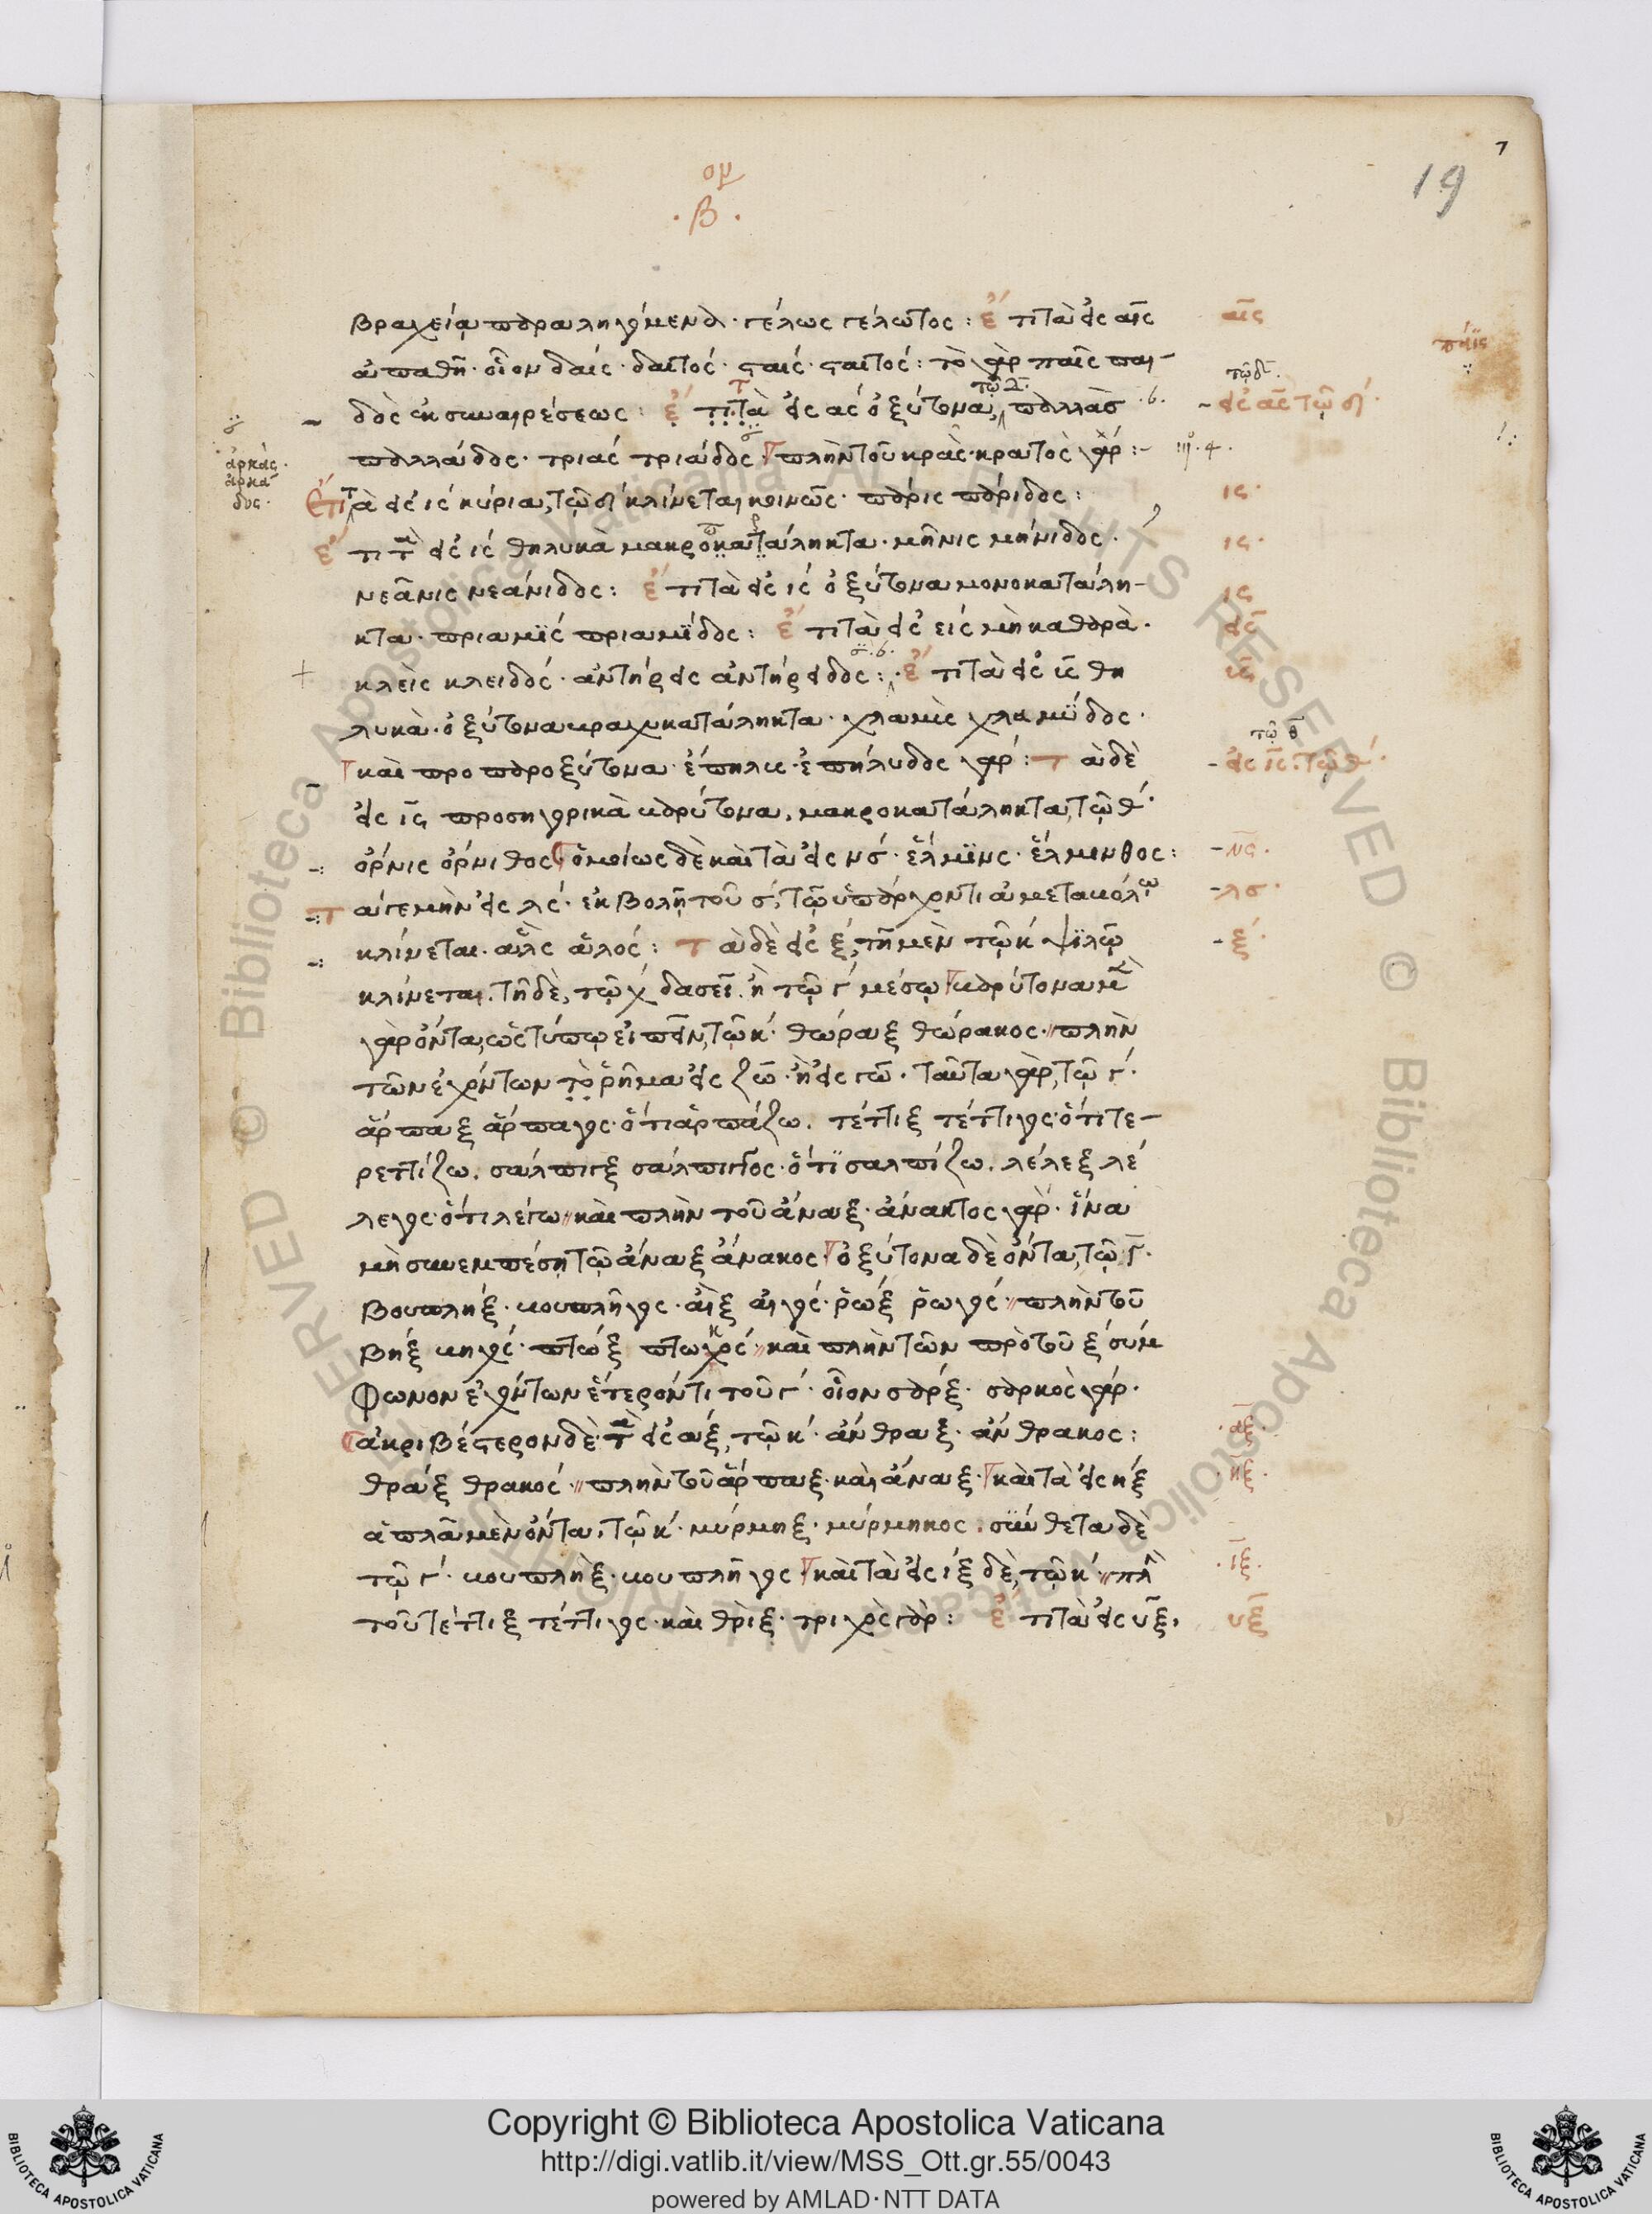 ομ
·β·
19
7
βραχεία παραληγόμενα· γέλως γέλωτος: ἔτι τὰ εἰς αις
ἀπαθῆ· οἷον δαίς· δαιτός· σταίς· σταιτός: τὸ γὰρ παῖς παι-
δὸς ἐκ συναιρέσεως: ἔτι τὰ εἰς ας ὀξύτονα, τῷ δ. παλλὰσ
παλλάδος· τριας τριάδος· πλὴν τοῦ κρὰς· κρατὸς γάρ:-
Ἔτι τὰ εἰς ις κύρια, τῷ δ κλίνεται κοινῶς· πάρις πάριδος:
ἔτι τὰ εἰς ις θηλυκὰ μακροκατάληκτα· μῆνις μήνιδος·
νεᾶνις νεάνιδος: ἔτι τὰ εἰς ις ὀξύτονα μονοκατάλη-
κτα· πριαμϊς πριαμϊδος: ἔτι τὰ εἰς εις μὴ καθαρὰ·
κλεὶς κλειδός· ἀντήρεις ἀντήρειδος: ἔτι τὰ εἰς ις θη
λυκὰ· ὀξύτονα βραχυκατάληκτα· χλαμὺς χλαμύδος·
καὶ προπαροξύτονα· ἔπηλυς· ἐπήλυδος γάρ: τὰ δὲ
εἰς ις προσηγορικὰ βαρύτονα, μακροκατάληκτα, τῷ θ·
ὄρνις ὄρνιθος ὁμοίως δὲ καὶ τὰ εἰς νσ· ἕλμινς· ἕλμινθος:
τά γε μὴν εἰς λς· ἐκβολῇ τοῦ σ, τῷ ὑπάρχοντι ἀμεταβόλῳ
κλίνεται· ἃλς ἁλός: τὰ δὲ εἰς ξ, πῆ μὲν τῷ κ ψιλῷ
κλίνεται. πῆ δὲ, τῷ χ δασεῖ. ἢ τῷ γ μέσῳ βαρύτονα μὲν
γὰρ ὄντα, ὡς τύπῳ εἰπεῖν, τῷ κ· θώραξ θώρακος· πλὴν
τῶν ἐχόντων τὸ ῥῆμα εἰς ζω· ἢ εἰς γω· ταῦτα γὰρ, τῷ γ·
ἅρπαξ ἅρπαγος· ὅτι ἁρπάζω. τέττιξ τέττιγος· ὅτι τε-
ρετίζω. σάλπιγξ σάλπιγγος· ὅτι σαλπίζω. λέλεξ λέ
λεγος· ὅτι λέγω καὶ πλὴν τοῦ ἄναξ· ἄνακτος γάρ· ἵνα
μὴ συνεμπέσῃ τῷ ἄναξ ἄνακος ὀξύτονα δὲ ὄντα, τῷ γ·
βουπλήξ· βουπλῆγος· αἲξ αἰγός· ῥώξ ῥωγός· πλὴν τοῦ
βήξ βηχός· πτώξ πτωχός· καὶ πλὴν τῶν πρὸ τοῦ ξ σύμ
φωνον ἐχόντων ἕτερόν τι τοῦ γ· οἷον σάρξ· σαρκὸς γάρ·
ἀκριβέστερον δὲ· τὰ εἰς αξ, τῷ κ· ἄνθραξ· ἄνθρακος:
θράξ θρακός· πλὴν τοῦ ἅρπαξ· καὶ ἄναξ· καὶ τὰ εἰς ηξ
ἁπλᾶ μὲν ὄντα, τῷ κ· μύρμηξ· μύρμηκος· σύνθετα δὲ
τῷ γ· βουπλὴξ· βουπλῆγος καὶ τὰ εἰς ιξ δὲ, τῷ κ· πλὴν
τοῦ τέττιξ τέττιγος· καὶ θρὶξ· τριχὸς γάρ: ἔτι τὰ εἰς υξ,
αις
παῖς
τῷ δ.
εἰς ας τῷ δ·
ις·
ις·
ις
εις
υς
τῷ θ
εἰς ις· τῷ θ·
νς·
λσ·
ξ·
αξ·
ηξ·
ιξ·
υξ
ἀρκάς·
ἀρκά
δος·
Copyright © Biblioteca Apostolica Vaticana
http://digi.vatlib.it/view/MSS_Ott.gr.55/0043
powered by AMLAD·NTT DATA